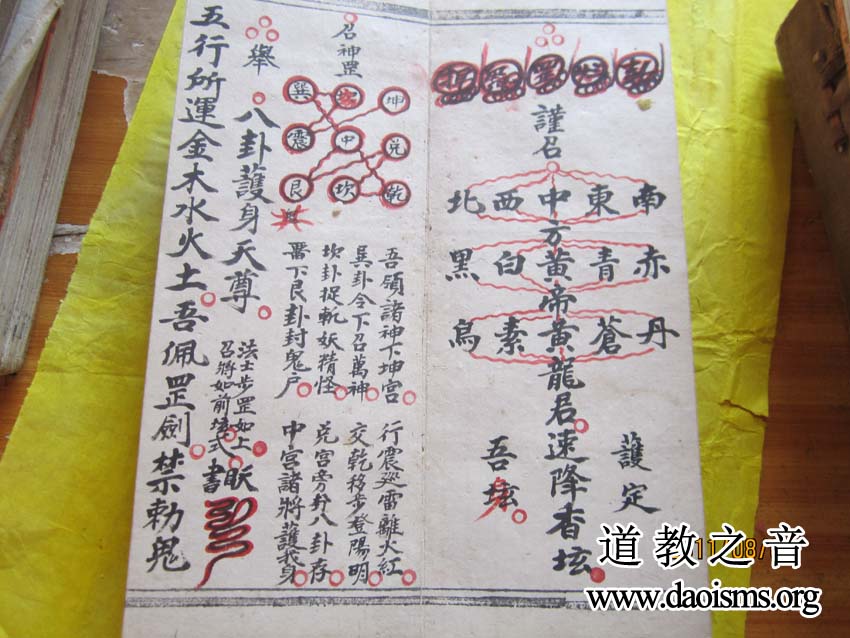 謹召
南 東 中 西 北
方
赤 青 黃 白 黑
帝
丹 蒼 黃 素 烏
龍君速降香坛
護定
吾坛
召神罡
巽 坤
震 中 兌
艮 坎 乾
吾領諸神下坤宮
行震廵雷離火紅
巽卦令下召萬神
交乾移步登陽明
坎卦捉斬妖精怪
兌宮旁卦八卦存
罡下艮卦封鬼户
中宮諸將護我身
舉
八卦護身天尊
法士步罡如上
召將如前坛式
書
五行所運金木水火土吾佩罡劍禁勅鬼
道教之音
www.daoisms.org